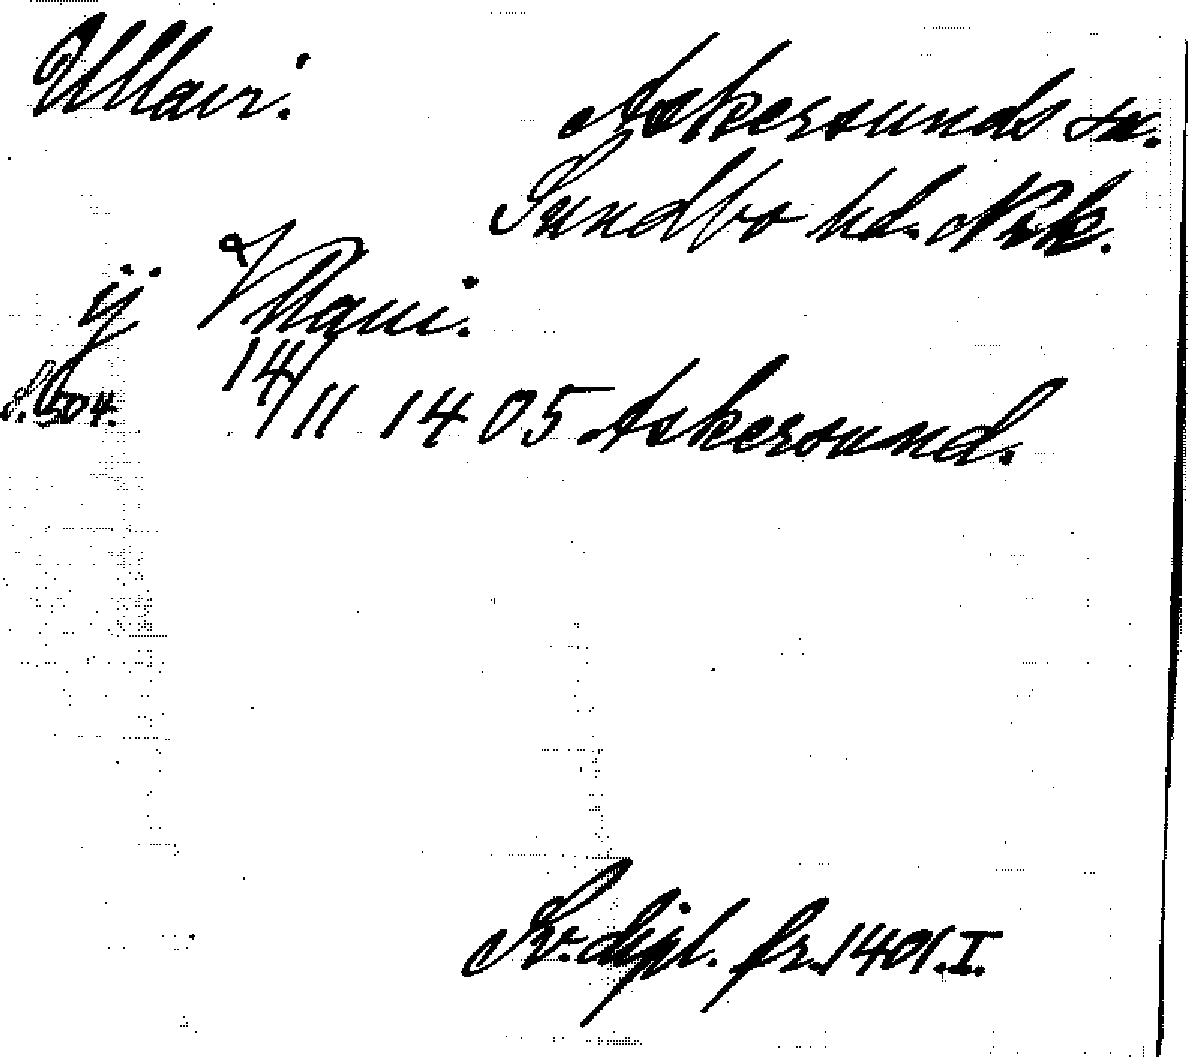 Ullavi.
Askersunds sn.
Sundbo hd. Nrk.
ij Vllaui.
s. 504. 14/11 1405 Askersund.
Sv. dipl. fr. 1401. I.